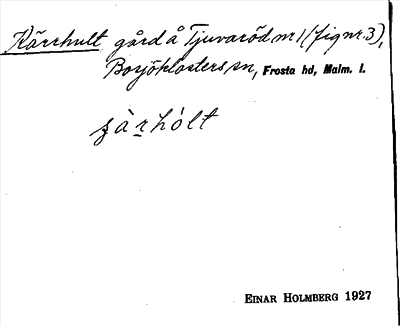 Kärrhult gård å Tjuvaröd nr 1 (fig nr 3),
Bosjöklosters sn, Frosta hd, Malm. l.
þàr̲hólt
EINAR HOLMBERG 1927